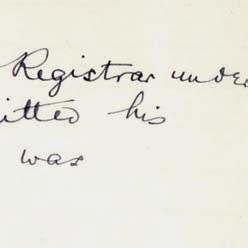 Registrar unde
itted his
was